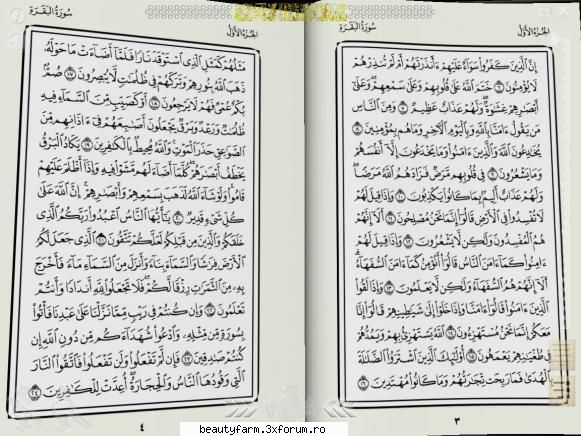 سورة البقرة
الجزء الأول
إِنَّ الَّذِينَ كَفَرُوا سَوَاءٌ عَلَيْهِمْ ءَأَنذَرْتَهُمْ أَمْ لَمْ تُنذِرْهُمْ
لَا يُؤْمِنُونَ ٦ خَتَمَ اللَّهُ عَلَىٰ قُلُوبِهِمْ وَعَلَىٰ سَمْعِهِمْ ۖ وَعَلَىٰ
أَبْصَارِهِمْ غِشَاوَةٌ ۖ وَلَهُمْ عَذَابٌ عَظِيمٌ ٧ وَمِنَ النَّاسِ
مَن يَقُولُ ءَامَنَّا بِاللَّهِ وَبِالْيَوْمِ الْآخِرِ وَمَا هُم بِمُؤْمِنِينَ ٨
يُخَادِعُونَ اللَّهَ وَالَّذِينَ ءَامَنُوا وَمَا يَخْدَعُونَ إِلَّا أَنفُسَهُمْ
وَمَا يَشْعُرُونَ ٩ فِي قُلُوبِهِم مَّرَضٌ فَزَادَهُمُ اللَّهُ مَرَضًا ۖ
وَلَهُمْ عَذَابٌ أَلِيمٌ بِمَا كَانُوا يَكْذِبُونَ ١٠ وَإِذَا قِيلَ لَهُمْ
لَا تُفْسِدُوا فِي الْأَرْضِ قَالُوا إِنَّمَا نَحْنُ مُصْلِحُونَ ١١ أَلَا إِنَّهُمْ
هُمُ الْمُفْسِدُونَ وَلَٰكِن لَّا يَشْعُرُونَ ١٢ وَإِذَا قِيلَ لَهُمْ
ءَامِنُوا كَمَا ءَامَنَ النَّاسُ قَالُوا أَنُؤْمِنُ كَمَا ءَامَنَ السُّفَهَاءُ ۗ
أَلَا إِنَّهُمْ هُمُ السُّفَهَاءُ وَلَٰكِن لَّا يَعْلَمُونَ ١٣ وَإِذَا لَقُوا
الَّذِينَ ءَامَنُوا قَالُوا ءَامَنَّا وَإِذَا خَلَوْا إِلَىٰ شَيَاطِينِهِمْ قَالُوا إِنَّا
مَعَكُمْ إِنَّمَا نَحْنُ مُسْتَهْزِءُونَ ١٤ اللَّهُ يَسْتَهْزِئُ بِهِمْ وَيَمُدُّهُمْ
فِي طُغْيَانِهِمْ يَعْمَهُونَ ١٥ أُولَٰئِكَ الَّذِينَ اشْتَرَوُا الضَّلَالَةَ
بِالْهُدَىٰ فَمَا رَبِحَت تِّجَارَتُهُمْ وَمَا كَانُوا مُهْتَدِينَ ١٦
٣
سورة البقرة
الجزء الأول
مَثَلُهُمْ كَمَثَلِ الَّذِي اسْتَوْقَدَ نَارًا فَلَمَّا أَضَاءَتْ مَا حَوْلَهُ
ذَهَبَ اللَّهُ بِنُورِهِمْ وَتَرَكَهُمْ فِي ظُلُمَاتٍ لَّا يُبْصِرُونَ ١٧ صُمٌّ
بُكْمٌ عُمْيٌ فَهُمْ لَا يَرْجِعُونَ ١٨ أَوْ كَصَيِّبٍ مِّنَ السَّمَاءِ فِيهِ
ظُلُمَاتٌ وَرَعْدٌ وَبَرْقٌ يَجْعَلُونَ أَصَابِعَهُمْ فِي ءَاذَانِهِم مِّنَ
الصَّوَاعِقِ حَذَرَ الْمَوْتِ ۚ وَاللَّهُ مُحِيطٌ بِالْكَافِرِينَ ١٩ يَكَادُ الْبَرْقُ
يَخْطَفُ أَبْصَارَهُمْ ۖ كُلَّمَا أَضَاءَ لَهُم مَّشَوْا فِيهِ وَإِذَا أَظْلَمَ عَلَيْهِمْ
قَامُوا ۚ وَلَوْ شَاءَ اللَّهُ لَذَهَبَ بِسَمْعِهِمْ وَأَبْصَارِهِمْ ۚ إِنَّ اللَّهَ عَلَىٰ
كُلِّ شَيْءٍ قَدِيرٌ ٢٠ يَا أَيُّهَا النَّاسُ اعْبُدُوا رَبَّكُمُ الَّذِي
خَلَقَكُمْ وَالَّذِينَ مِن قَبْلِكُمْ لَعَلَّكُمْ تَتَّقُونَ ٢١ الَّذِي جَعَلَ لَكُمُ
الْأَرْضَ فِرَاشًا وَالسَّمَاءَ بِنَاءً وَأَنزَلَ مِنَ السَّمَاءِ مَاءً فَأَخْرَجَ
بِهِ مِنَ الثَّمَرَاتِ رِزْقًا لَّكُمْ ۖ فَلَا تَجْعَلُوا لِلَّهِ أَندَادًا وَأَنتُمْ
تَعْلَمُونَ ٢٢ وَإِن كُنتُمْ فِي رَيْبٍ مِّمَّا نَزَّلْنَا عَلَىٰ عَبْدِنَا فَأْتُوا
بِسُورَةٍ مِّن مِّثْلِهِ وَادْعُوا شُهَدَاءَكُم مِّن دُونِ اللَّهِ إِن
كُنتُمْ صَادِقِينَ ٢٣ فَإِن لَّمْ تَفْعَلُوا وَلَن تَفْعَلُوا فَاتَّقُوا النَّارَ
الَّتِي وَقُودُهَا النَّاسُ وَالْحِجَارَةُ ۖ أُعِدَّتْ لِلْكَافِرِينَ ٢٤
٤
beautyfarm.3xforum.ro